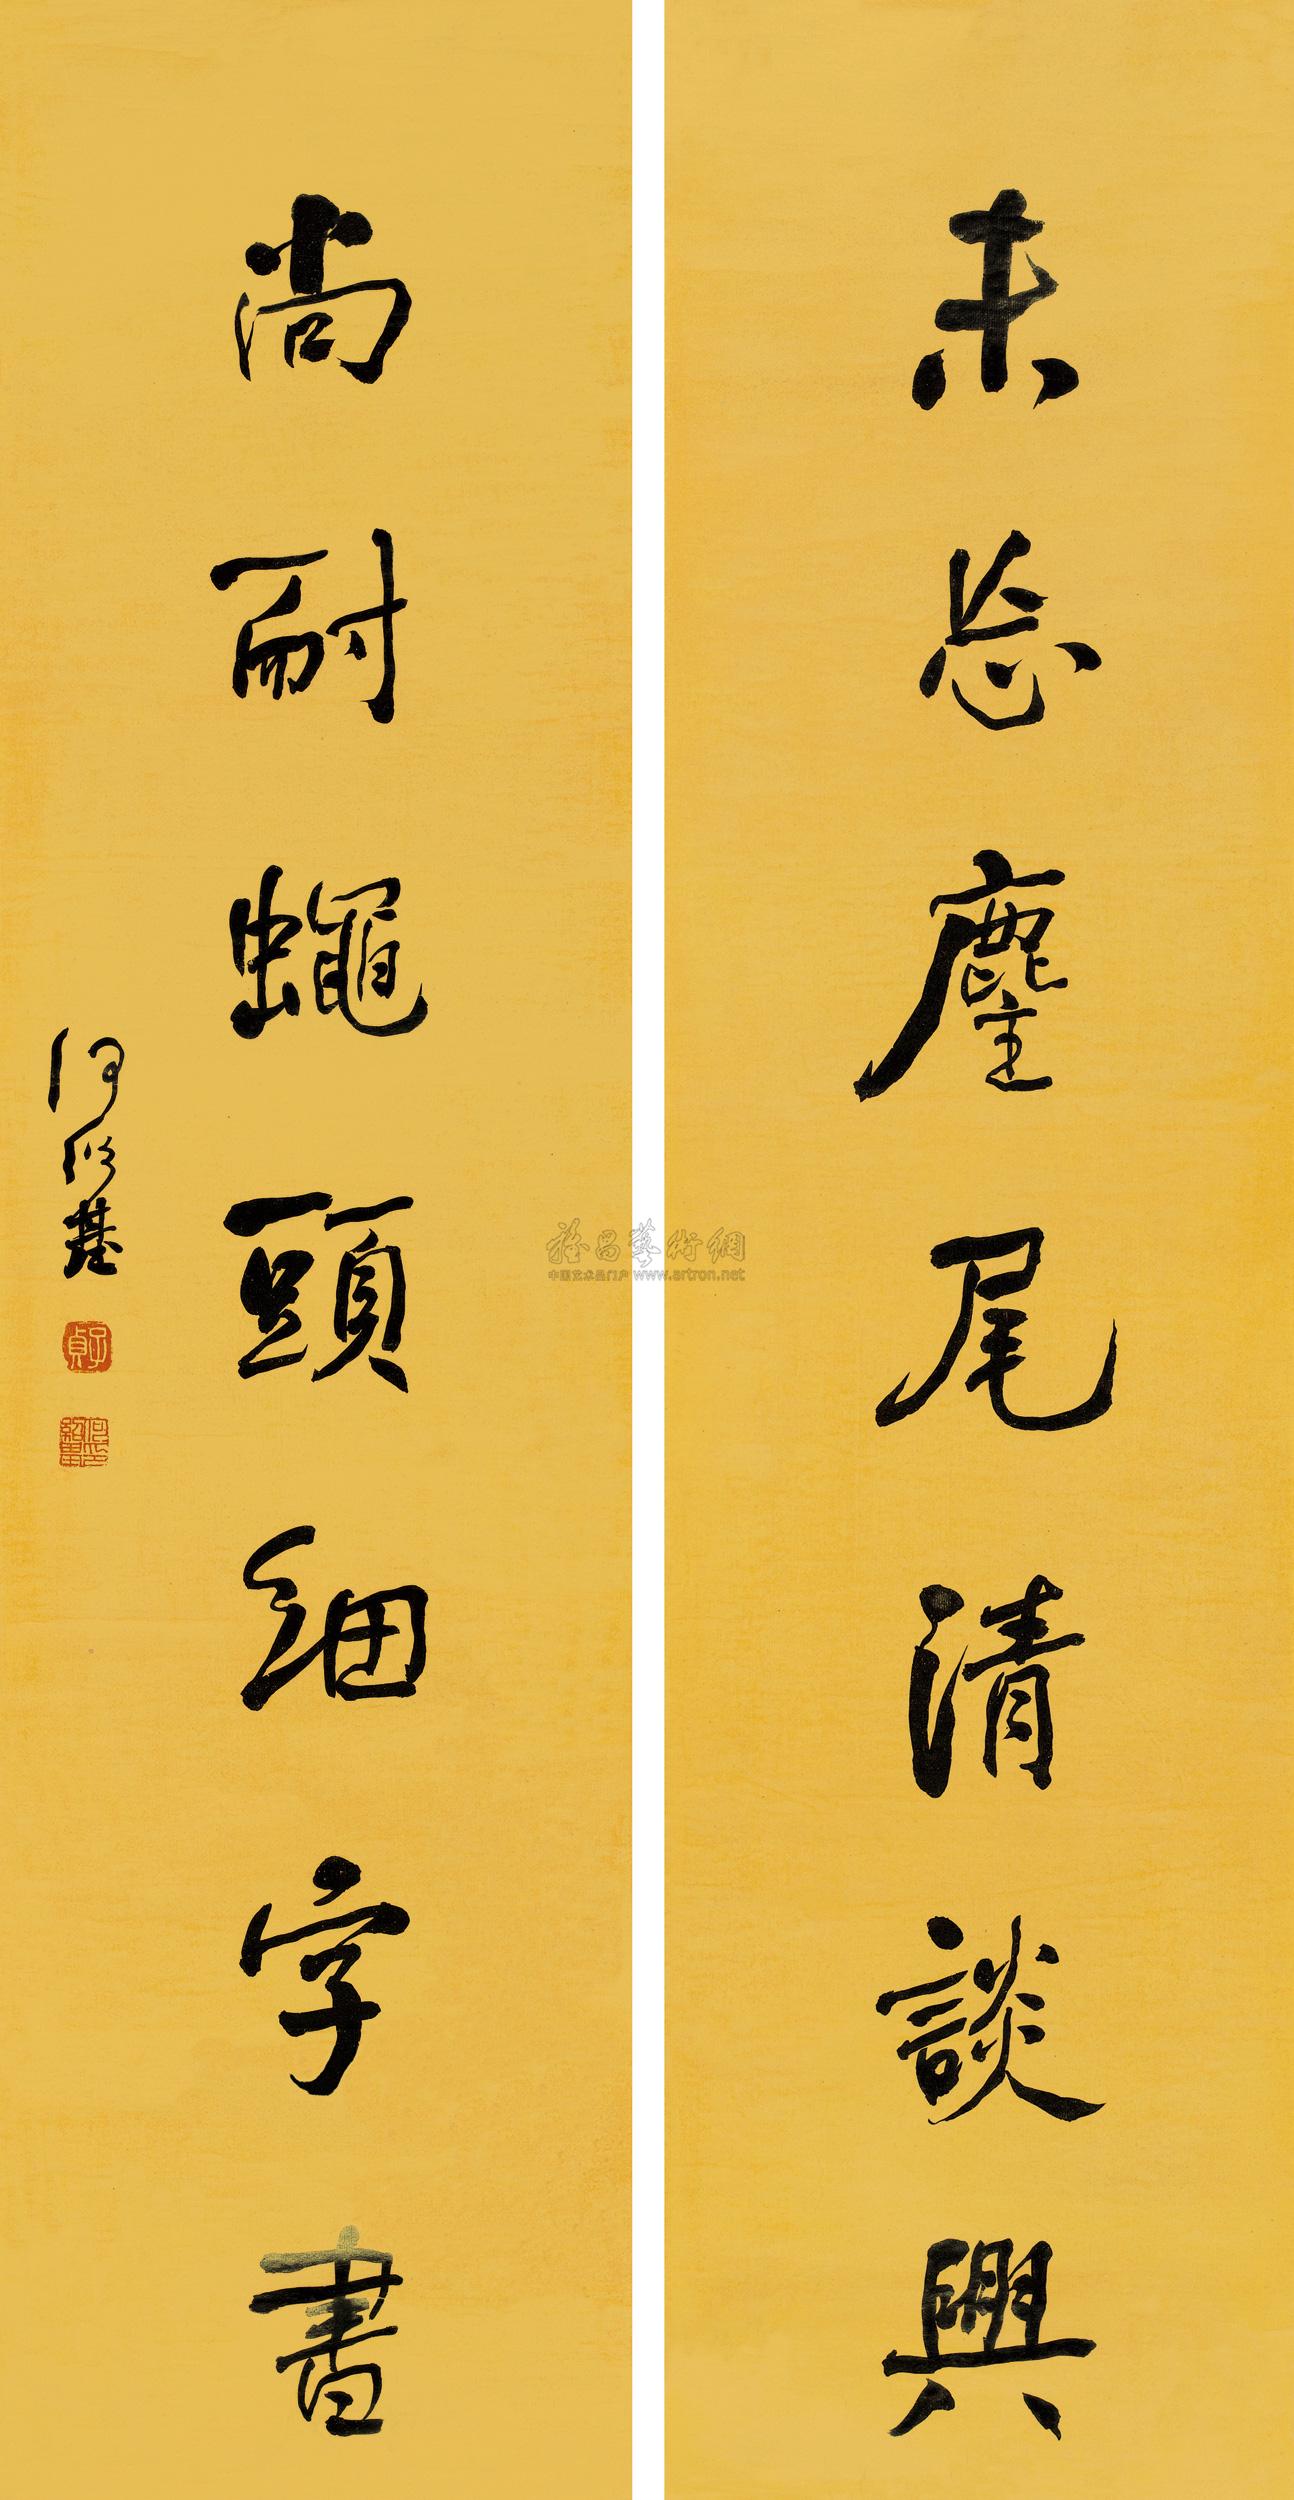 未忘麈尾清談興
尚耐蠅頭細字書
何紹基
子貞
何紹基印
雅昌藝術網
中国艺术品门户 www.artron.net